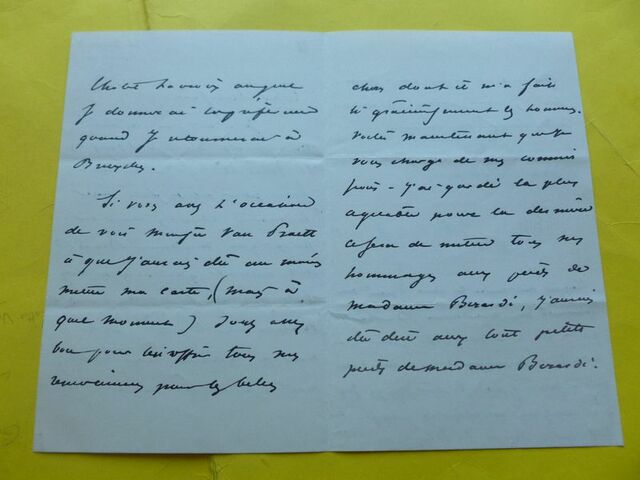 quand je retournerai à
Bruxelles.
Si vous avez l'occasion
de voir monsieur Van Praett
à qui j'aurais dû au moins
mettre ma carte, (mais à
quel moment) soyez assez
bon pour lui offrir tous mes
remerciements pour les belles
choses dont il m'a fait
si gracieusement les honneurs.
Voilà maintenant que je
vous charge de mes commis
sions - j'ai gardé la plus
agréable pour la dernière
ce sera de mettre tous mes
hommages aux pieds de
madame Berardi, j'aurais
dû dire aux tout petits
pieds de madame Berardi.